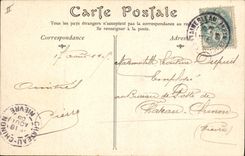 Carte Postale
Tous les pays étrangers n'acceptent pas la correspondance au recto
Se renseigner à la poste
Correspondance
Adresse
Mademoiselle
Employée
au Bureau de Poste de
Château Chinon
Amitiés
Pierre
(Nièvre)
CHATEAU-CHINON
NIEVRE